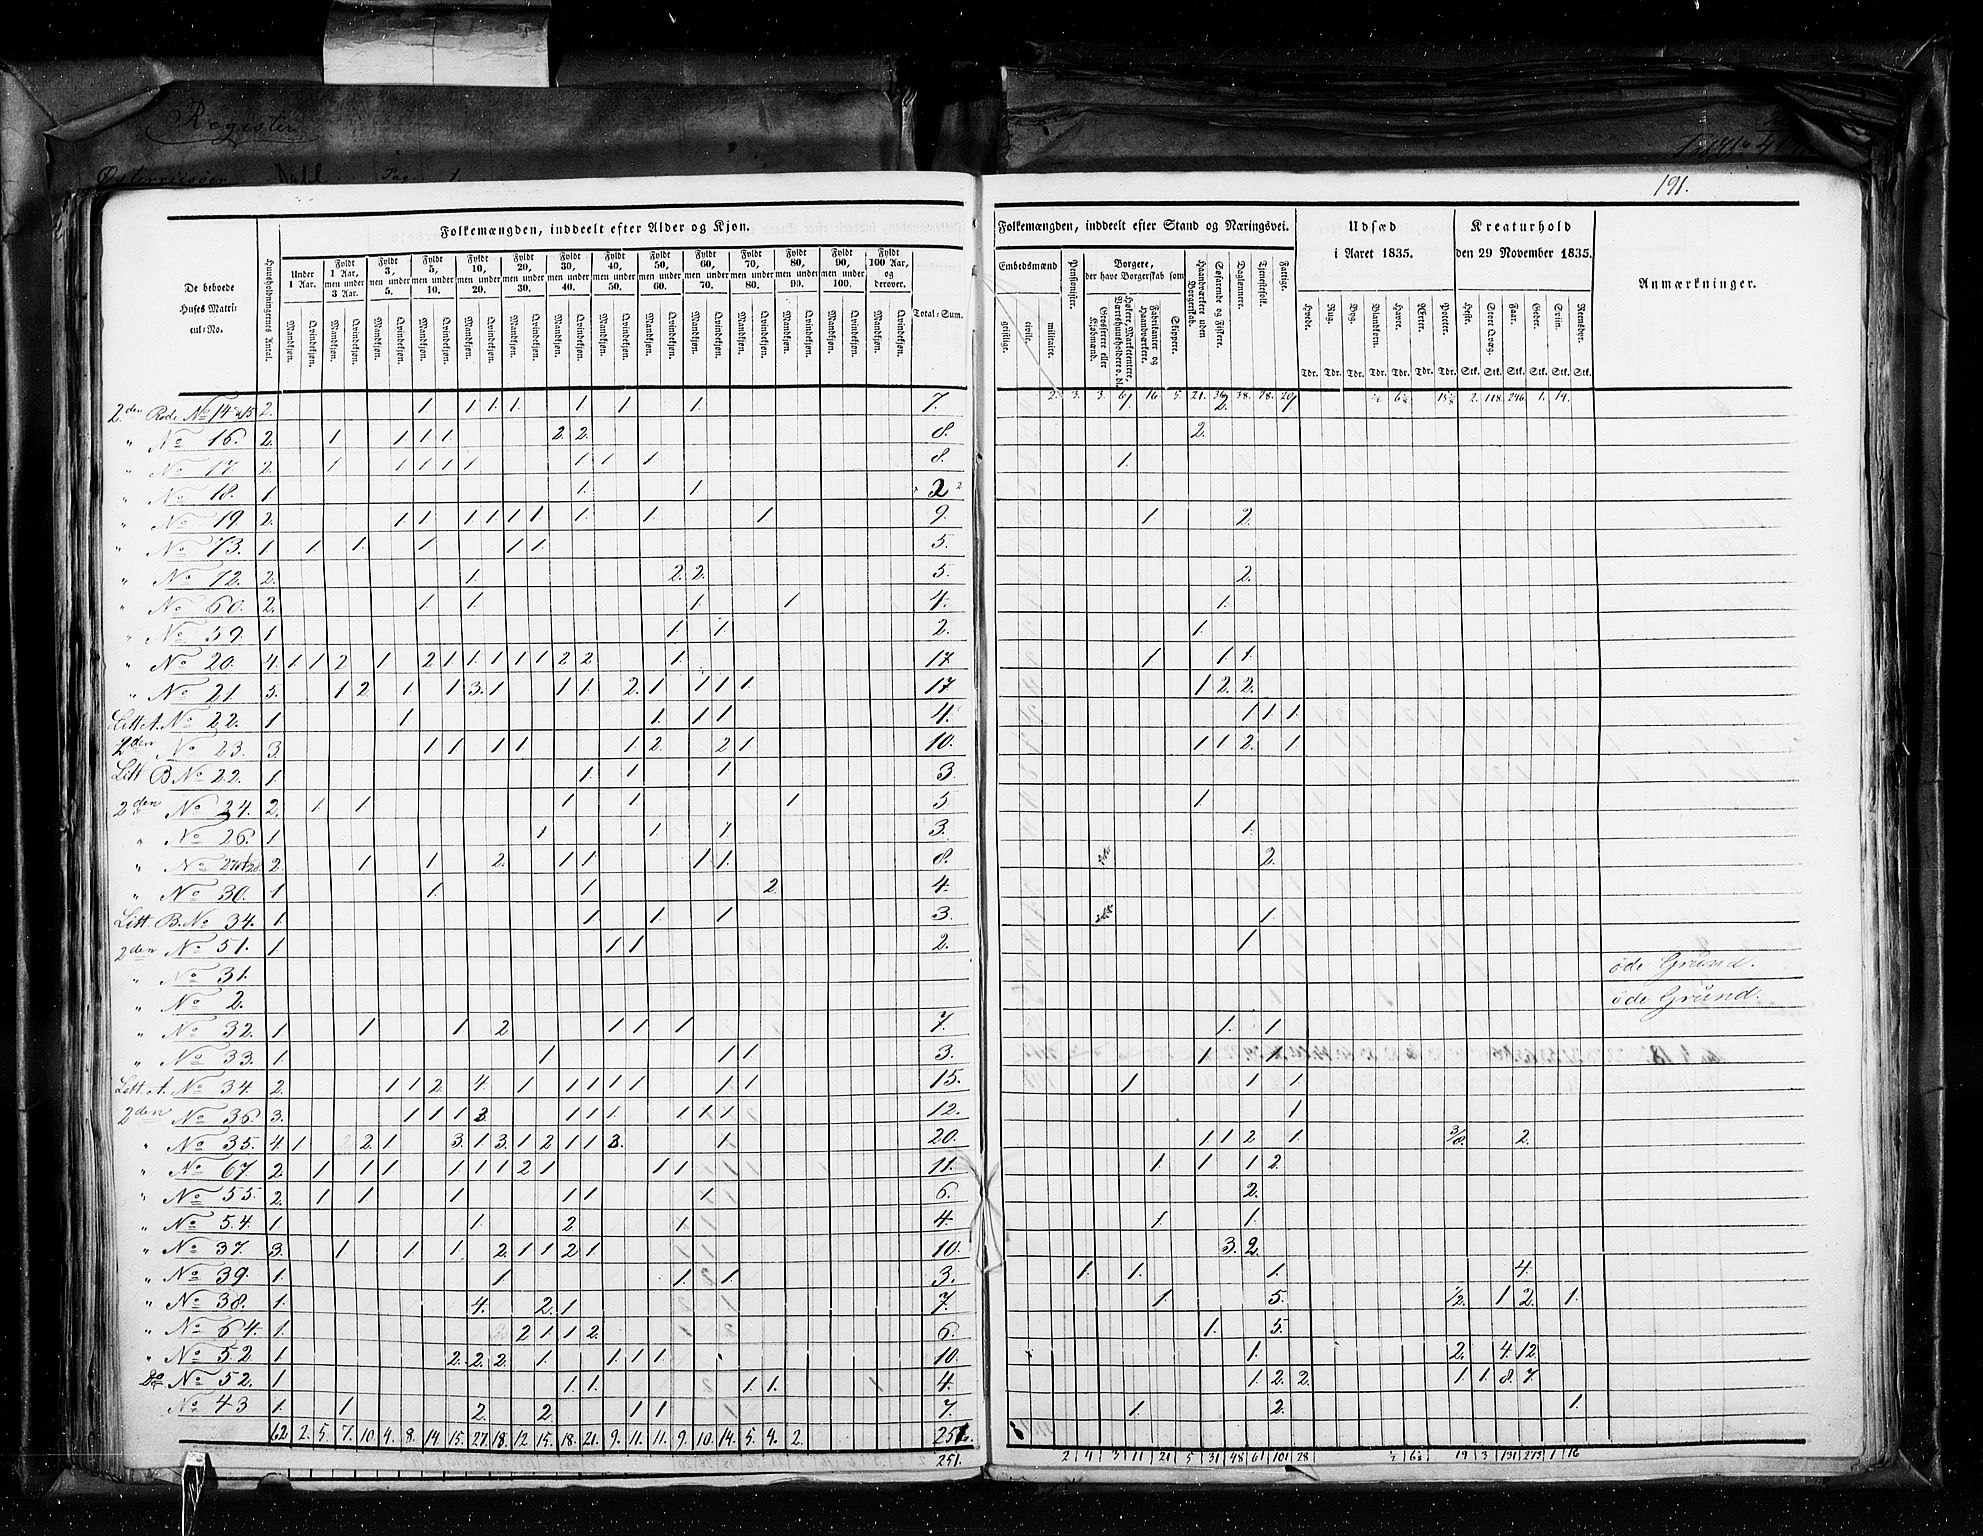 Register
Pag. 1
191.
Folkemængden, inddeelt efter Alder og Kjøn.
De beboede Huses Matricul-No.
Huusholdningernes Antal.
Under 1 Aar.
Fyldt 1 Aar, men under 3 Aar.
Fyldt 3, men under 5.
Fyldt 5, men under 10.
Fyldt 10, men under 20.
Fyldt 20, men under 30.
Fyldt 30, men under 40.
Fyldt 40, men under 50.
Fyldt 50, men under 60.
Fyldt 60, men under 70.
Fyldt 70, men under 80.
Fyldt 80, men under 90.
Fyldt 90, men under 100.
Fyldt 100 Aar, og derover.
Mandkjøn. Qvindekjøn.
Total-Sum.
2den Rode No 14 2. 1. 1. 1. 1. 1. 1. 1. 7.
" No 16. 2. 1 1 1 1 2. 2. 8.
" No 17. 2. 1 1 1 1 1 1 1 1 8.
" No 18. 1. 1. 1. 2
" No 19 2. 1 1 1 1 1 1 1. 1 1 9.
" No 73. 1 1 1. 1 1 1 5.
" No 72. 2. 1. 2. 2. 5.
" No 60. 2. 1 1. 1. 1 4.
" No 59. 1 1. 1. 2.
" No 20. 4. 1. 1 2 1 2 1 1. 1 1 1 2 2 1. 17
" No 21. 5. 1 2. 1 1 3. 1 1 1. 2. 1 1 1 1 17
Litt A. No 22. 1 1 1. 1 1 4.
2den No 23. 3. 1 1 1 1 1 2. 2 1 10.
Litt B No 22. 1 1 1. 1 3.
2den No 24. 2. 1. 1 1 1 1 5
" No 26. 1 1 1 1 3.
" No 2. 1 1 2. 1 1 1 1. 8.
" No 30. 1 1. 1 2. 4.
Litt. B. No 34. 1 1 1. 1 3.
2den No 51. 1 1 1 2.
" No 31.
" No 2.
" No 32. 1. 1 1. 2 1 1 1. 7.
" No 33. 1. 1 1 1 3.
Litt. A. No 34. 2. 1 1 2 4. 1 1 1 1 1 1 1 15.
2den No 36. 3. 1 1 1 3 1 1 1 1 1 1 12.
" No 35. 4. 1 2 1 3. 1 3. 1 2 1 1 3. 1 20.
" No 67. 2 1 1 1 1 1 1 2 1 1 1 11.
" No 55. 2. 1 1 1 1 1 1. 6.
" No 54. 1 1. 2. 1. 4.
" No 37. 3. 1 1 1. 2 1 1 2 1 10.
" No 39. 1. 1 1. 1 3.
" No 38. 1. 4. 2. 1 7.
" No 64. 1. 2 1 1 2. 6.
" No 52. 1 2. 2. 2 1. 1. 1 1 10.
Do No 52. 1 1. 1. 1 1. 4.
No 43 1. 1 2. 2. 1 1 7.
62 2. 5. 7. 10. 4. 8. 14. 15. 27. 18. 12. 15. 18. 21. 9. 11. 11. 9. 10. 14. 5. 4. 2. 251.
251.
Folkemængden, inddeelt efter Stand og Næringsvei.
Embedsmænd
geistlige. civile. militaire.
Pensionister.
Borgere, der have Borgerskab som
Grosserere eller Kjøbmænd.
Høkere, Marketentere, Værtshuusholdere o. dl.
Fabrikanter og Haandværkere.
Skippere.
Haandværkere uden Borgerskab.
Søfarende og Fiskere.
Daglønnere.
Tjenestefolk.
Fattige.
Udsæd i Aaret 1835.
Hvede. Rug. Byg. Blandkorn. Havre. Ærter. Poteter.
Tdr. Tdr. Tdr. Tdr. Tdr. Tdr. Tdr.
Kreaturhold den 29 November 1835.
Heste. Stort Qvæg. Faar. Geder. Sviin. Rensdyr.
Stk. Stk. Stk. Stk. Stk. Stk.
Anmærkninger.
2. 3. 3. 6. 16. 5. 21. 36. 38. 78. 20. 2. 118. 246. 1. 14.
1. 2. 1
2.
1.
1 2.
2.
1.
1.
1 1. 1.
1 2. 2.
1 1 1
1 1 2. 1
1
1.
2.
1.
1
öde Grund.
öde Grund.
1. 1
1 1
1 1 1
1
1 1 2 1. 3/8. 2.
1. 1 1 2.
2.
1. 1.
3. 2.
1. 1. 1. 4.
1. 5. 1/2. 1 2. 1.
1. 5.
1. 2. 4. 12.
1 2. 2. 1 1 8. 7.
1. 2. 1.
2 4 3 11 21 5 31 48 61 101 28 ½ 6½ 19 3 131 273 1 16